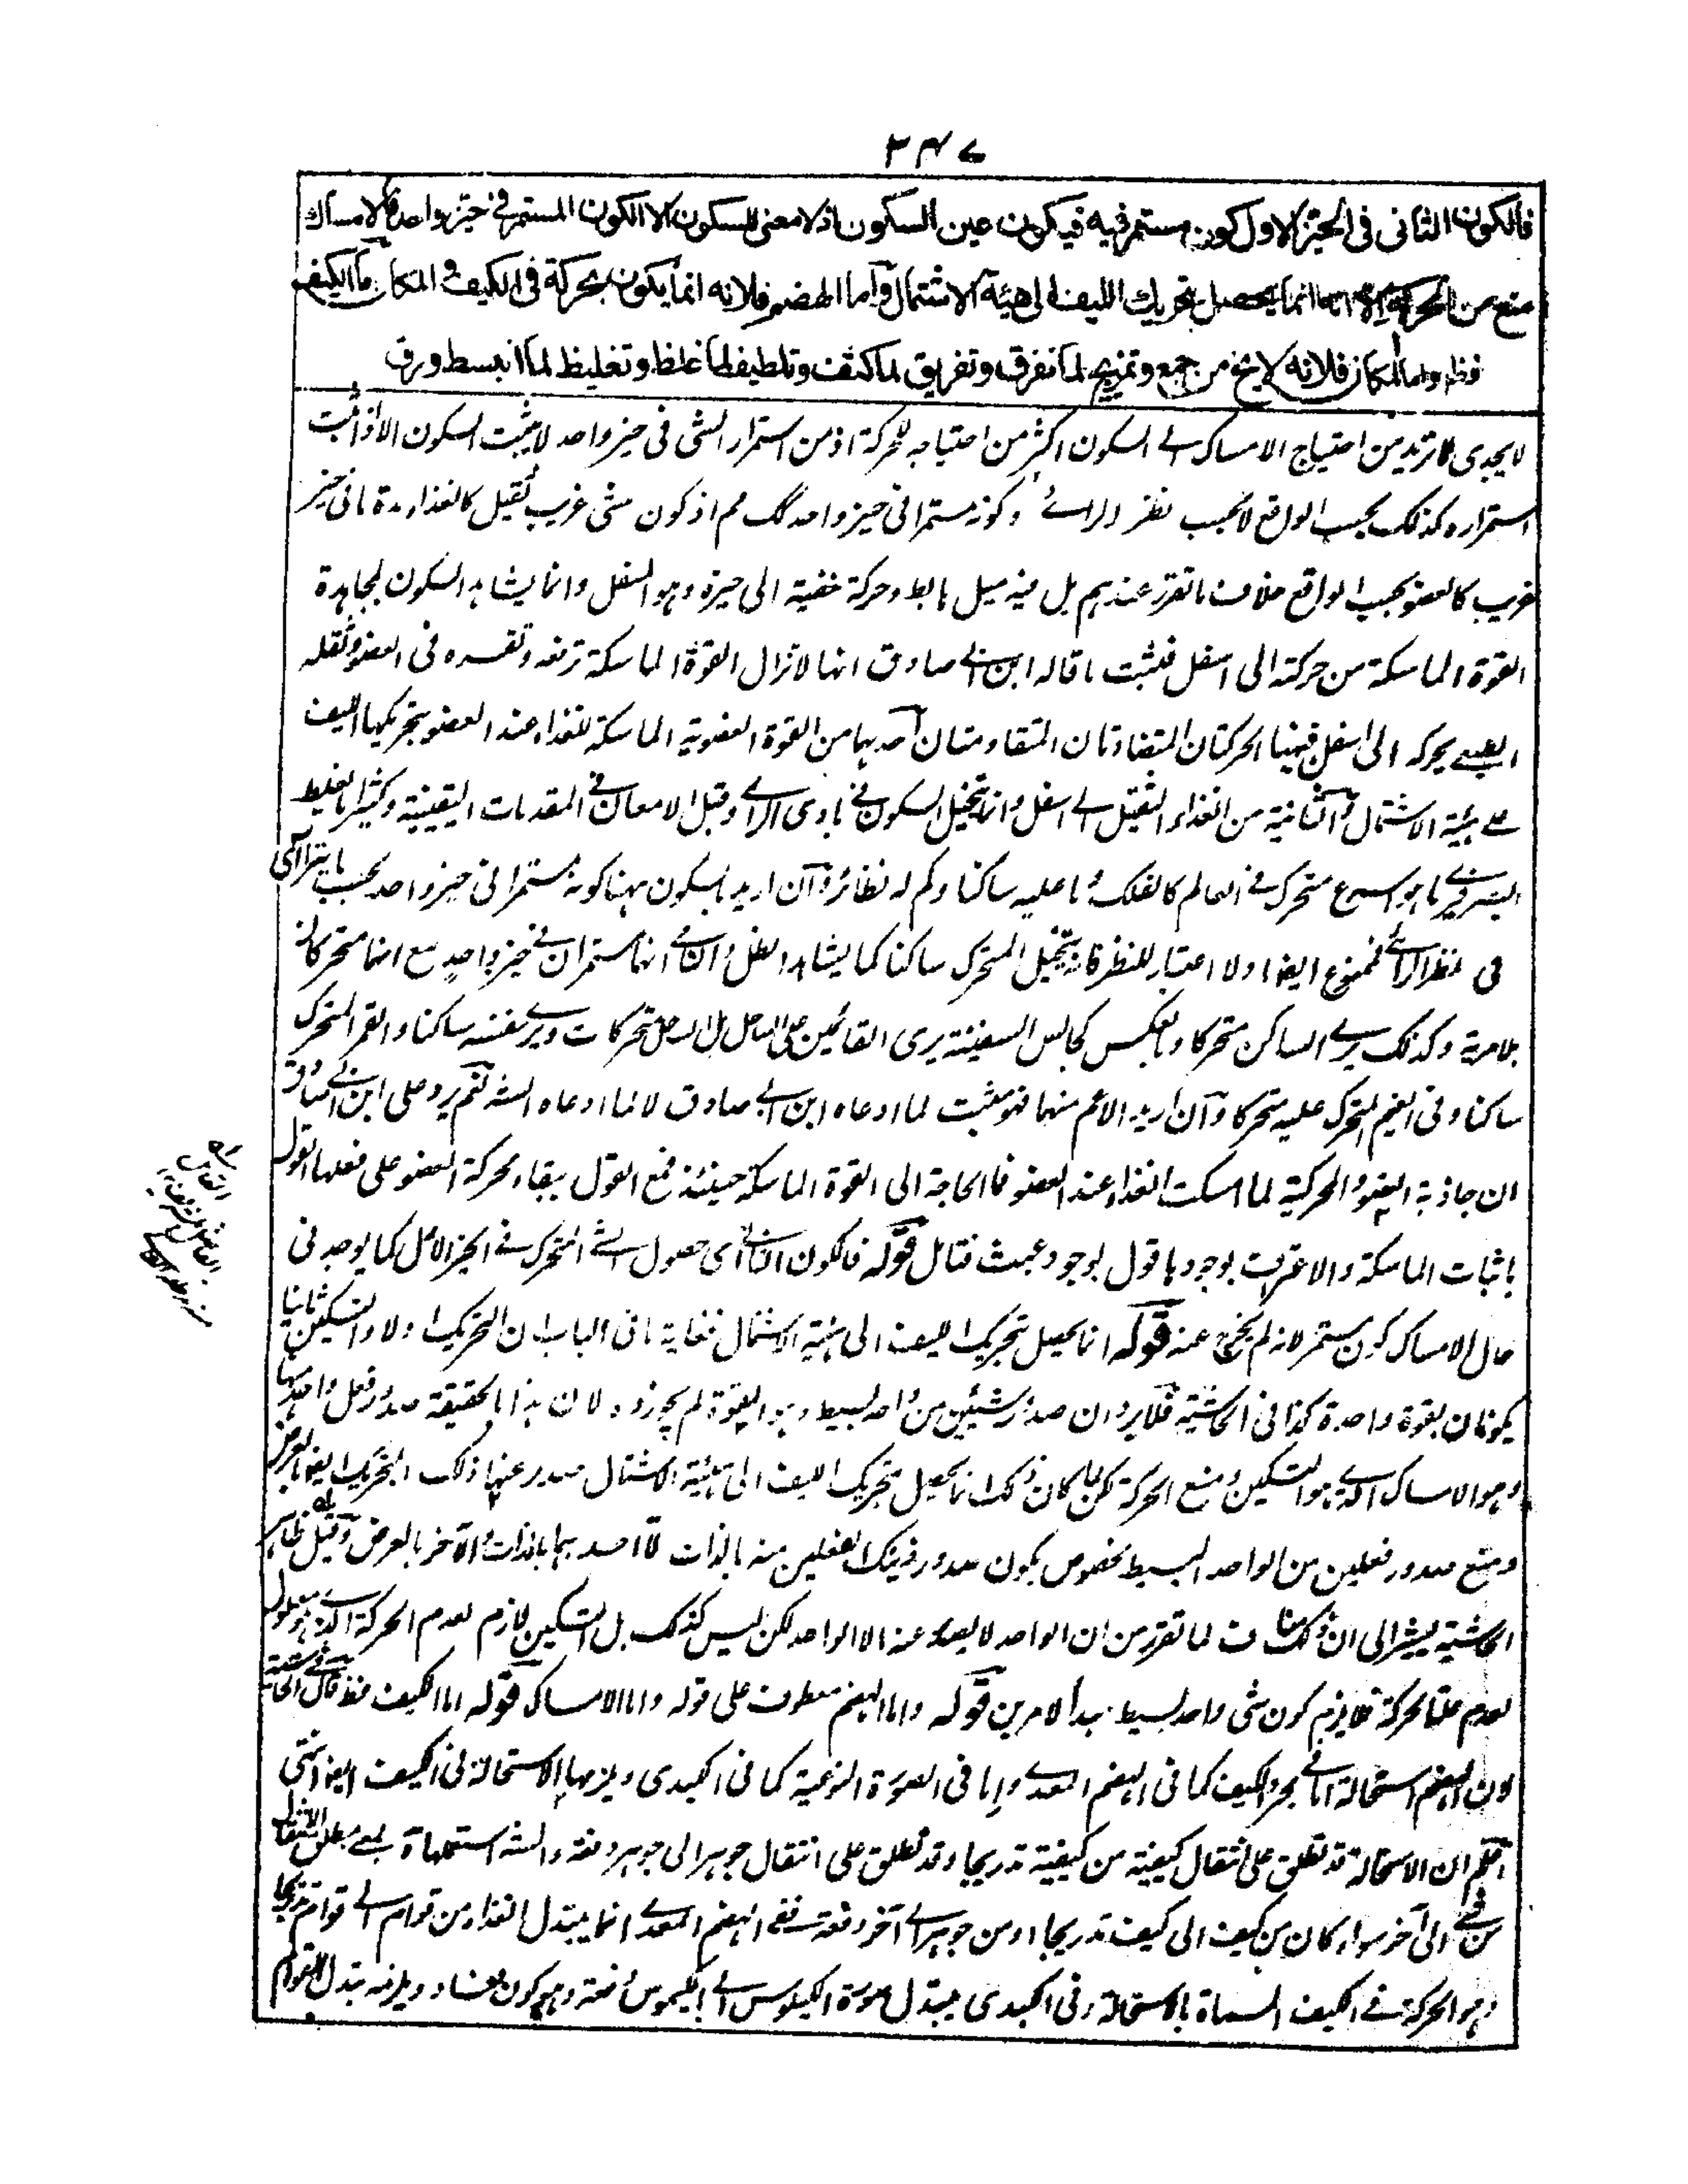 ٣٤٧
فالكون الثانى فى الحيز الاول كون مستمر فيه فيكون عين السكون اذ لا معنى للسكون الا الكون المستمر فى حيز واحد فالامساك
منع من الحركة الا انه انما يحصل بتحريك الليف الى هيئة الاشتمال وأما الهضم فلانه انما يكون بحركة فى الكيف و المكان أما الكيف
فظ واما المكان فلانه لا يخ من جمع وتمزيج لما تفرق وتفريق لما كثف وتلطيف لما غلظ وتغليظ لما انبسط ورق
لا يجدى لما تريد من احتياج الامساك الے السكون اكثر من احتياجه للحركة اذ من استمرار الشى فى حيز واحد لا يثبت السكون الا اذا ثبت
استمراره كذلك بحسب الواقع لا بحسب نظر الرائے وكونه مستمرا فى حيز واحد كك مم اذ كون شى غريب ثقيل كالغذاء مدة ما فى حيز
غريب كالعضو بحسب الواقع خلاف ما تقرر عندهم بل فيه ميل هابط وحركة خفية الى حيزه وهو السفل وانما يشاهد السكون لمجاهدة
القوة الماسكة من حركته الى اسفل فثبت ما قاله ابن ابى صادق انها لا تزال القوة الماسكة ترفعه وتقسره فى العضو وثقله
الطبيعى يحركه الى اسفل فههنا الحركتان المتضادتان المتقاومتان أحدهما من القوة العضوية الماسكة للغذاء عند العضو بتحريكها الليف
على هيئة الاشتمال والثانية من الغذاء الثقيل الے اسفل وانما يتخيل السكون فى بادى الراے وقبل الامعان فى المقدمات اليقينية وكثيرا ما يغلط
البصر فيرے ما هو اسرع متحرك فى العالم كالفلك وما عليه ساكنا وكم له نظائر وان اريد بالسكون ههنا كونه مستمرا فى حيز واحد بحسب ما يتراآى
فى نظر الرائے فممنوع ايضا ولا اعتبار للنظر فانه يتخيل المتحرك ساكنا كما يشاهد الظل انهما مستمران فى حيز واحد مع انهما متحركان
بلا مرية وكذلك يرے الساكن متحركا وبالعكس كجالس السفينة يرى القائمين على الساحل بل الساحل متحركات ويرے نفسه ساكنا والقمر المتحرك
ساكنا وفى الغيم المتحرك عليه متحركا وان اريد الاعم منهما فهو مثبت لما ادعاه ابن ابى صادق لا لما ادعاه الش نعم يرد على ابن ابى صادق
ان جاذبة العضو الحركية لما امسكت الغذاء عند العضو فما الحاجة الى القوة الماسكة حينئذ فمع القول ببقاء محركة العضو على فعلها القول
باثبات الماسكة والاعتراف بوجودها قول بوجود عبث فتامل قوله فالكون الثانى اى حصول الشى المتحرك فى الحيز الاول كما يوجد فى
حال الامساك كون مستمر لانه لم يخرج عنه قوله انما يحصل بتحريك الليف الى هيئة الاشتمال فغاية ما فى الباب ان التحريك اولا والتسكين ثانيا
يكونان بقوة واحدة كذا فى الحاشية فلا يرد ان صدور شيئين من واحد بسيط وهو القوة لم يجوزوه لان هذا بالحقيقة صدور فعل واحد منها
وهو الامساك الذے هو التسكين ومنع الحركة لكن لما كان ذلك انما يحصل بتحريك الليف الى هيئة الاشتمال صدر عنها ذلك التحريك ايضا بالعرض
ومنع صدور فعلين من الواحد البسيط مخصوص بكون صدور ذينك الفعلين منه بالذات لا احدهما بالذات والآخر بالعرض وقيل ظاهر
الحاشية يشير الى ان ذلك مناف لما تقرر من ان الواحد لا يصدر عنه الا الواحد لكن ليس كذلك بل التسكين لازم لعدم الحركة الذے هو معلول
لعدم علة الحركة فلا يلزم كون شى واحد بسيط مبدأ لامرين قوله واما الهضم معطوف على قوله واما الامساك قوله اما الكيف فظ قال فى الحاشية
لان الهضم استحالة اما فى مجرد الكيف كما فى الهضم المعدے واما فى الصورة النوعية كما فى الكبدى ويلزمها الاستحالة فى الكيف ايضا انتهى
اعلم ان الاستحالة قد تطلق على انتقال كيفية من كيفية تدريجا وقد تطلق على انتقال جوهر الى جوهر دفعة والش استعملها بمعنے مطلق الانتقال
من شے الى آخر سواء كان من كيف الى كيف تدريجا او من جوهر الے آخر دفعة ففى الهضم المعدے انما يتبدل الغذاء من قوام الے قوام تدريجا
وهو الحركة فى الكيف المسماة بالاستحالة وفى الكبدى يتبدل صورة الكيلوس الے الكيموس دفعة وهو كون وفساد ويلزمه تبدل القوام